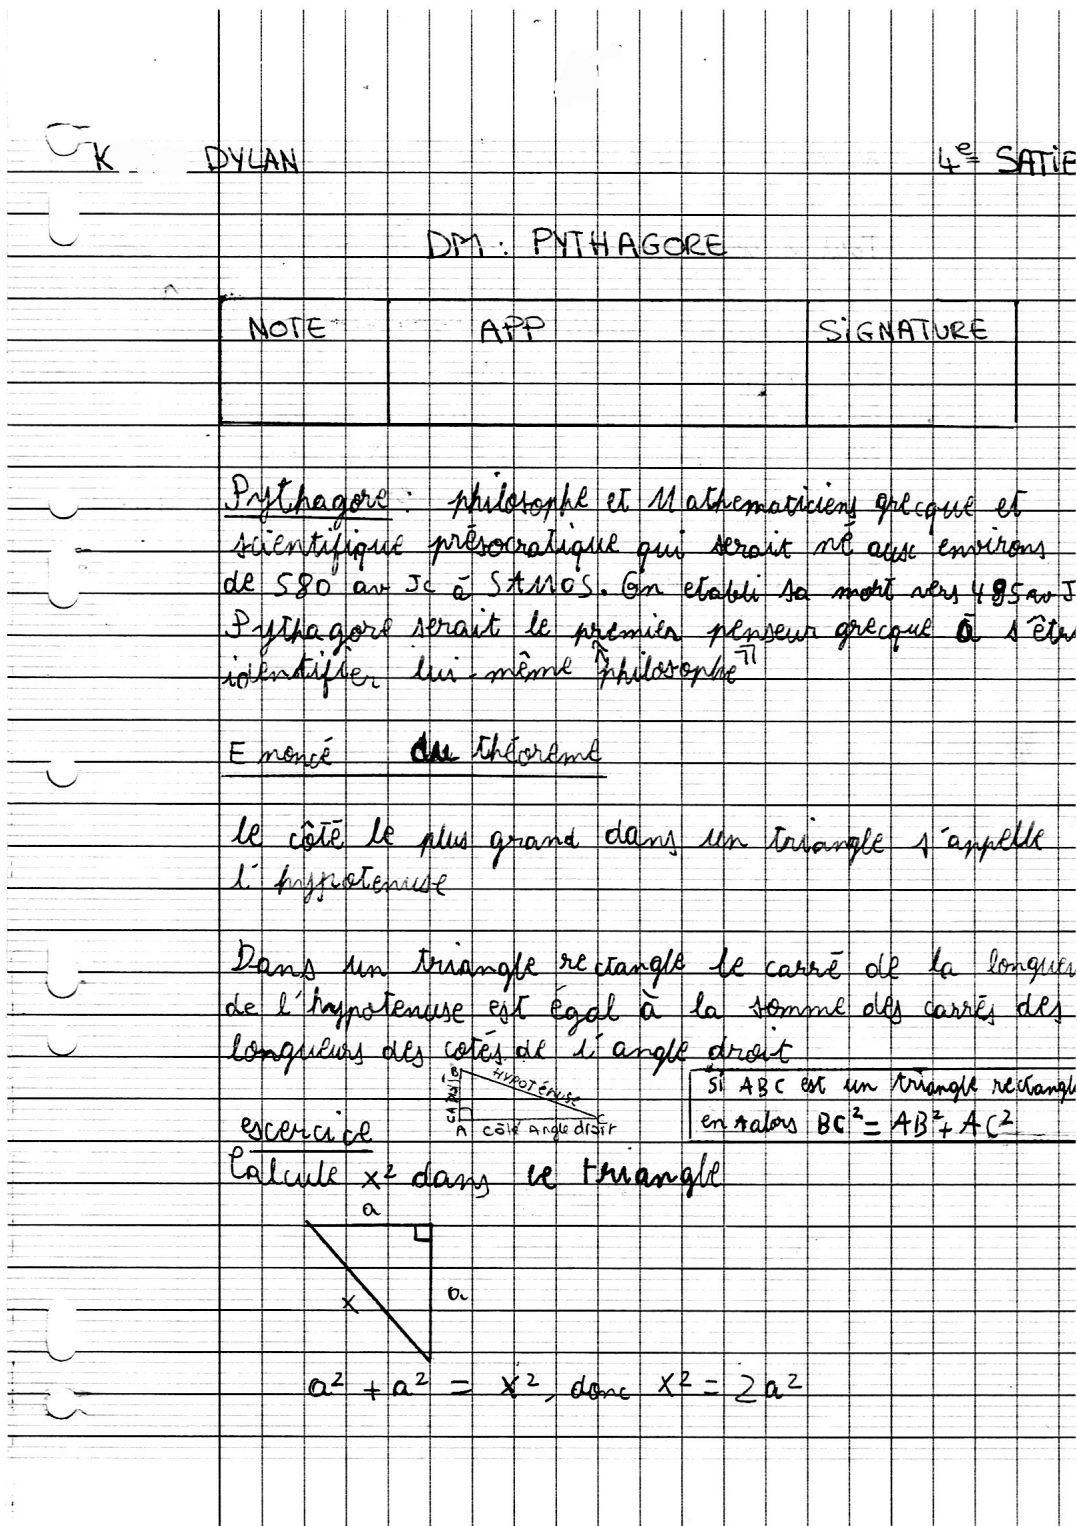 K DYLAN 4e SATiE
DM : PYTHAGORE
NOTE APP SiGNATURE
Pythagore : philosophe et Mathematiciens grecque et
scientifique présocratique qui serait né aux environs
de 580 av Jc à SAMOS. On etabli sa mort vers 495 av J
Pythagore serait le premier penseur grecque à s'être
identifier lui-même "philosophe"
Enoncé du théoreme
le côté le plus grand dans un triangle s'appelle
l'hypotenuse
Dans un triangle rectangle le carré de la longueu
de l'hypotenuse est égal à la somme des carrés des
longueurs des cotés de l'angle droit
B HYPOTÉNUSE C
A côté Angle droit
Si ABC est un triangle rectangle
en A alors BC² = AB² + AC²
exercice
Calcule x² dans ce triangle
a
x a
a² + a² = x², donc x² = 2a²